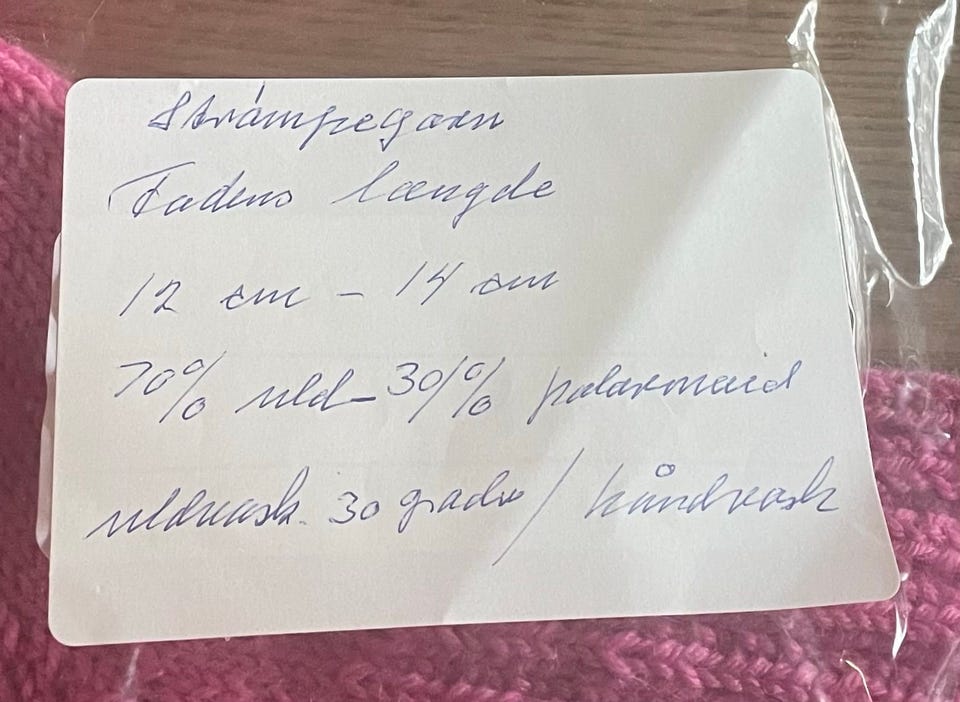 Strømpegarn
Fodens længde
12 cm - 14 cm
70% uld - 30% polarmaid
uldvask. 30 grader / håndvask